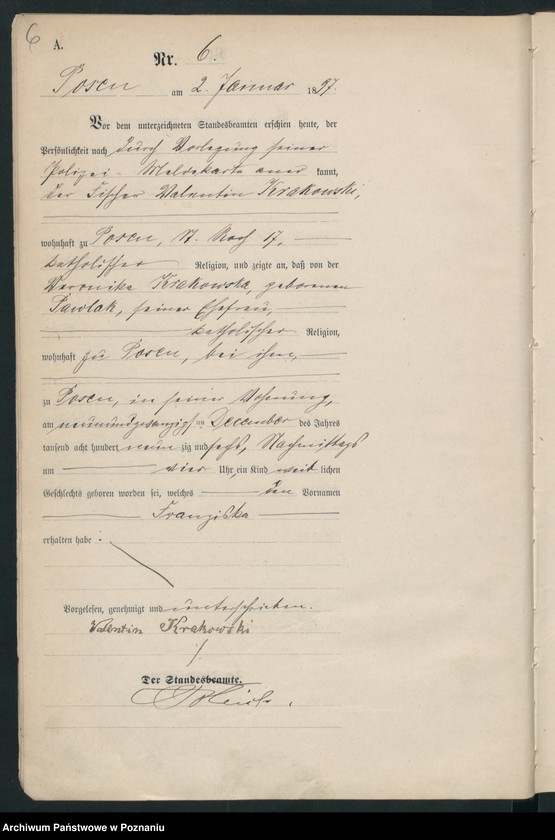 6
A.
Nr. 6.
Posen am 2. Januar 1897.
Vor dem unterzeichneten Standesbeamten erschien heute, der
Persönlichkeit nach durch Vorlegung seiner
Polizei-Meldekarte aner kannt,
der Fischer Valentin Krakowski,
wohnhaft zu Posen, St. Roch 17,
katholischer Religion, und zeigte an, daß von der
Veronika Krakowska, geborenen
Pawlak, seiner Ehefrau,
katholischer Religion,
wohnhaft zu Posen, bei ihm,
zu Posen, in seiner Wohnung,
am neunundzwanzigsten December des Jahres
tausend acht hundert neun zig und sechs, Nachmittags
um vier Uhr, ein Kind weib lichen
Geschlechts geboren worden sei, welches den Vornamen
Franziska
erhalten habe.
Vorgelesen, genehmigt und unterschrieben.
Valentin Krakowski
Der Standesbeamte.
Archiwum Państwowe w Poznaniu